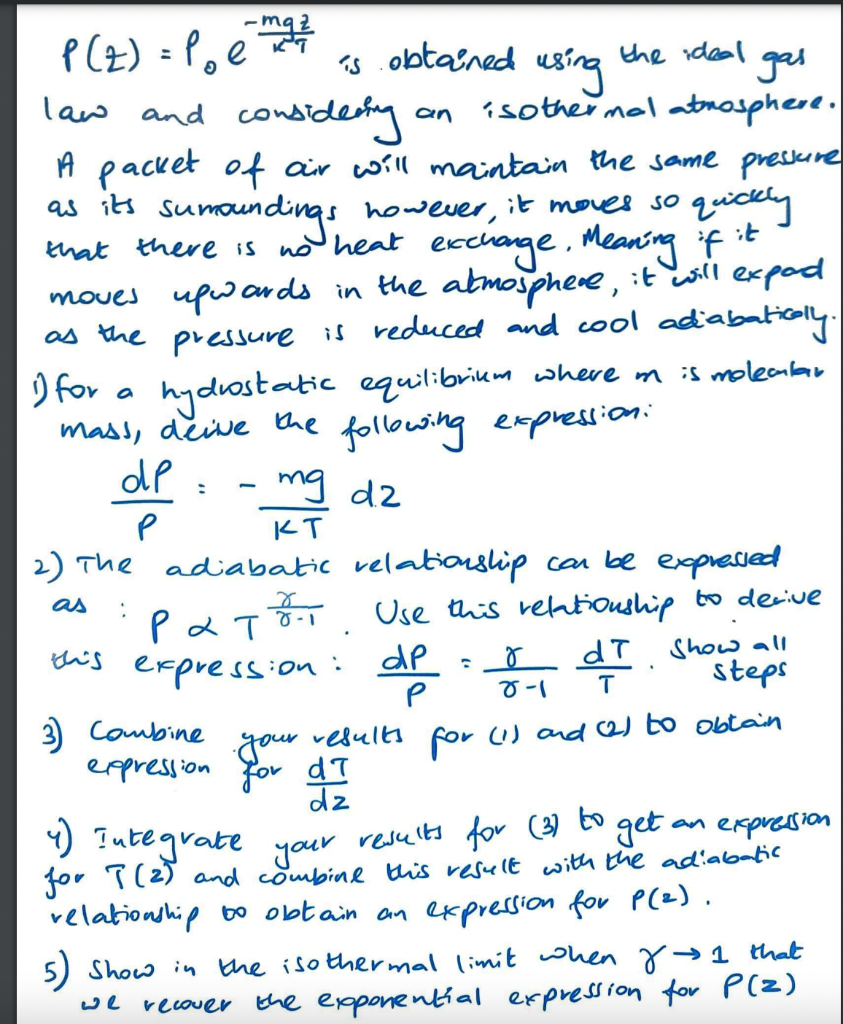 P(z) = P₀ e^(-mgz/KT) is obtained using the ideal gas
law and considering an isothermal atmosphere.
A packet of air will maintain the same pressure
as its surroundings however, it moves so quickly
that there is no heat exchange. Meaning if it
moves upwards in the atmosphere, it will expand
as the pressure is reduced and cool adiabatically.
1) for a hydrostatic equilibrium where m is molecular
mass, derive the following expression:
dP/P = - mg/KT dz
2) The adiabatic relationship can be expressed
as : P ∝ T^(γ/(γ-1)). Use this relationship to derive
this expression: dP/P = γ/(γ-1) dT/T. Show all
steps
3) Combine your results for (1) and (2) to obtain
expression for dT/dz
4) Integrate your results for (3) to get an expression
for T(z) and combine this result with the adiabatic
relationship to obtain an expression for P(z).
5) Show in the isothermal limit when γ → 1 that
we recover the exponential expression for P(z)